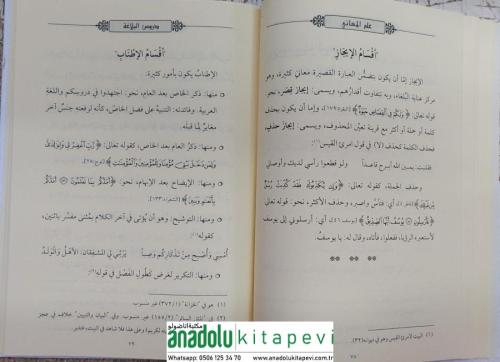 علم المعاني
"أقسام الإيجاز"
الإيجاز إمّا أن يكون بتضمّن العبارة القصيرة معاني كثيرة، وهو
مركز عناية البُلغاء، وبه تتفاوت أقدارهم، ويسمى: إيجاز قِصَر، نحو قوله
تعالى: ﴿وَلَكُمْ فِي الْقِصَاصِ حَيَاةٌ﴾ وإمّا أن يكون بحذف
كلمة أو جملة أو أكثر مع قرينة تعيّن المحذوف، ويسمى: إيجاز حذف.
فحذف الكلمة كحذف (لا) في قول امرئ القيس(١):
فقلت: يمين الله أبرح قاعدا ولو قطعوا رأسي لديك وأوصالي
وحذف الجملة، كقوله تعالى: ﴿وَإِن يُكَذِّبُوكَ فَقَدْ كُذِّبَتْ رُسُلٌ
أي: فتأس واصبر، وحذف الأكثر، نحو قوله تعالى
﴿فَأَرْسِلُونِ يُوسُفُ أَيُّهَا الصِّدِّيقُ﴾ أي: أرسلوني إلى يوسف
لأستعبره الرؤيا، ففعلوا، فأتاه، وقال له: يا يوسف.
* * * *
(١) البيت لامرئ القيس وهو في ديوانه (٣٢).
٧٨
دروس البلاغة
"أقسام الإطناب"
الإطناب يكون بأمور كثيرة:
منها: ذكر الخاص بعد العام، نحو: اجتهدوا في دروسكم واللغة
العربية. وفائدته: التنبيه على فضل الخاص، كأنه لرفعته جنس آخر
مغاير لما قبله
ومنها: ذكر العام بعد الخاص، كقوله تعالى: ﴿رَّبِّ اغْفِرْ لِي وَلِوَالِدَيَّ
وَلِمَن دَخَلَ بَيْتِيَ مُؤْمِنًا وَلِلْمُؤْمِنِينَ وَالْمُؤْمِنَاتِ﴾
ومنها: الإيضاح بعد الإبهام، نحو: ﴿أَمَدَّكُم بِمَا تَعْلَمُونَ أَمَدَّكُم
بِأَنْعَامٍ وَبَنِينَ﴾
ومنها: التوشيع: وهو أن يُؤتى في آخر الكلام بمثنى مفسّر باثنين،
كقوله(١):
أمسي وأصبح من تذكاركم وصبا يرثي لي المشفقان: الأهل والولد
ومنها: التكرير لغرض كطول الفصل في قوله(٢):
(١) هو في "خزانة" (١/٣٧٢) غير منسوب.
غير منسوب. وفي "البيان والتبيين" خلاف في عجز
٧٩
مكتبة اناضولو
anadolu kitapevi
Whatsapp: 0506 125 34 70 www.anadolukitapevi.com